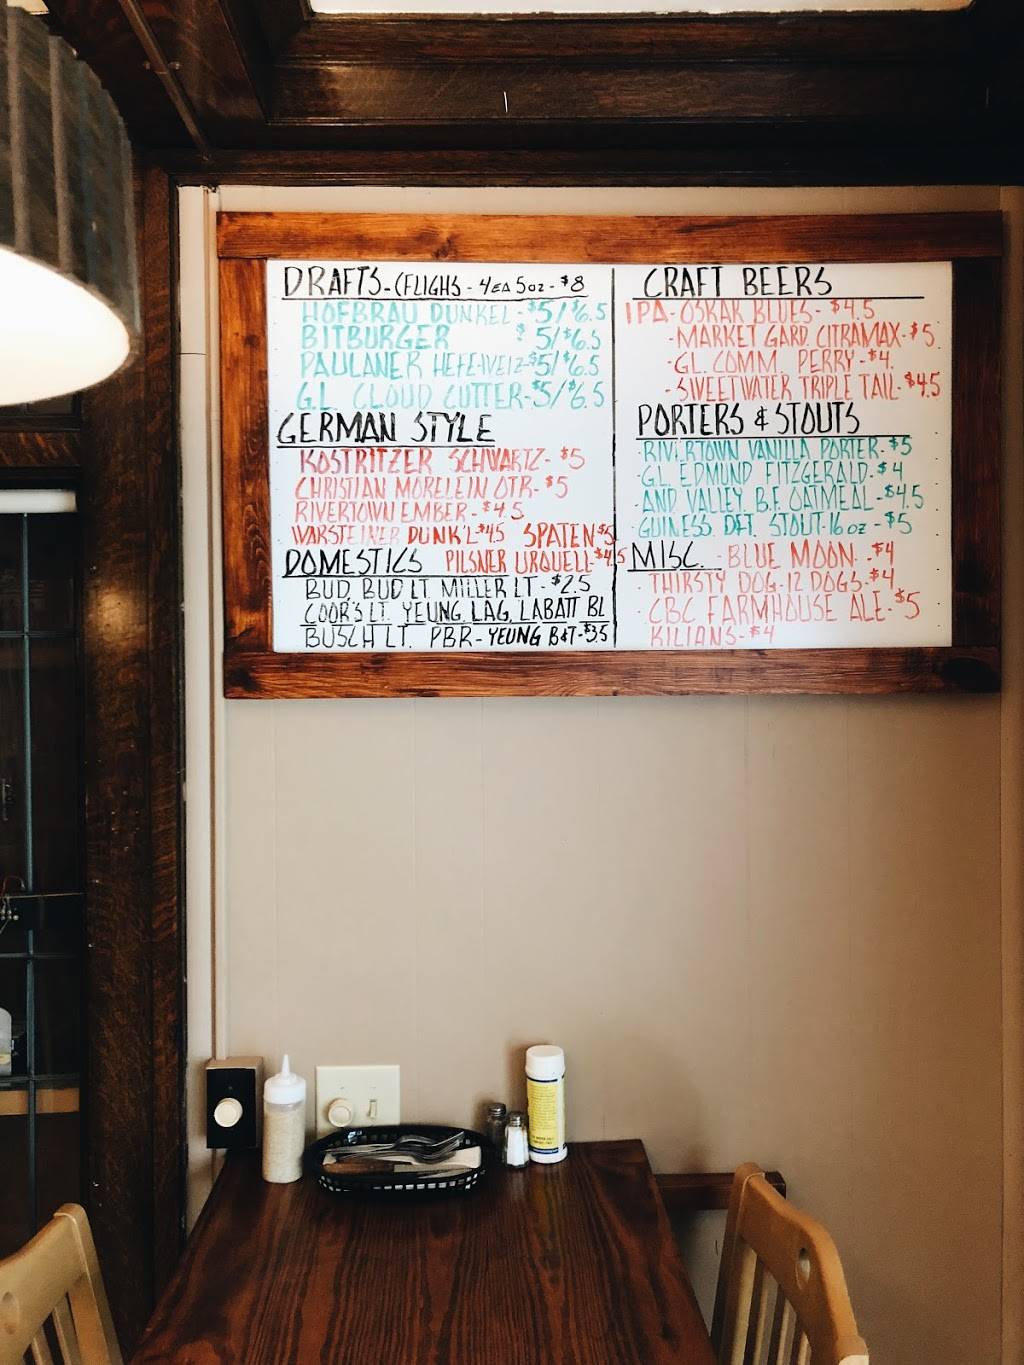 DRAFTS-(FLIGHS - 4EA 5oz - $8
HOFBRAU DUNKEL - $5/$6.5
BITBURGER $5/$6.5
PAULANER HEFE-WEIZ-$5/$6.5
G.L. CLOUD CUTTER-$5/$6.5
GERMAN STYLE
KOSTRITZER SCHWARTZ- $5
CHRISTIAN MORELEIN OTR- $5
RIVERTOWN EMBER - $4.5
WARSTEINER DUNK'L-$4.5 SPATEN $5
DOMESTICS PILSNER URQUELL-$4.5
BUD, BUD LT MILLER LT - $2.5
COOR'S LT. YEUNG. LAG, LABATT BL
BUSCH LT. PBR - YEUNG B&T-$3.5
CRAFT BEERS
IPA- OSKAR BLUES - $4.5
- MARKET GARD. CITRAMAX- $5
- G.L. COMM. PERRY - $4.
- SWEETWATER TRIPLE TAIL- $4.5
PORTERS & STOUTS
- RIVERTOWN VANILLA PORTER- $5
- G.L. EDMUND FITZGERALD- $4
- AND. VALLEY B.F. OATMEAL - $4.5
- GUINESS DFT. STOUT-16oz - $5
MISC. - BLUE MOON - $4
- THIRSTY DOG-12 DOGS- $4
- CBC FARMHOUSE ALE- $5
KILIANS- $4